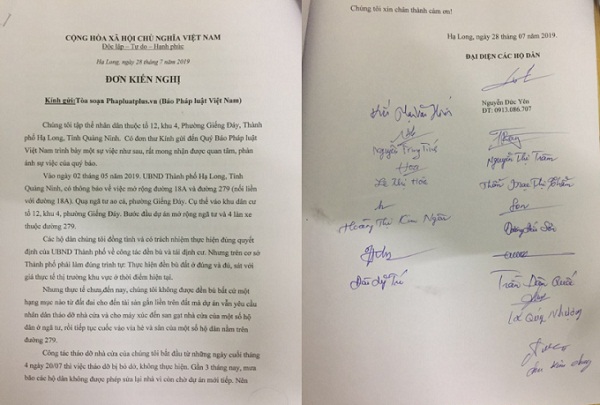 CỘNG HÒA XÃ HỘI CHỦ NGHĨA VIỆT NAM
Độc lập – Tự do – Hạnh phúc
Hạ Long, ngày 28 tháng 7 năm 2019
ĐƠN KIẾN NGHỊ
Kính gửi: Tòa soạn Phapluatplus.vn (Báo Pháp luật Việt Nam)
Chúng tôi tập thể nhân dân thuộc tổ 12, khu 4, Phường Giếng Đáy, Thành
phố Hạ Long, Tỉnh Quảng Ninh. Có đơn thư Kính gửi đến Quý Báo Pháp luật
Việt Nam trình bày một sự việc như sau, rất mong nhận được quan tâm, phản
ánh sự việc của quý báo.
Vào ngày 02 tháng 05 năm 2019. UBND Thành phố Hạ Long, Tỉnh
Quảng Ninh, có thông báo về việc mở rộng đường 18A và đường 279 (nối liền
với đường 18A). Qua ngã tư ao cá, phường Giếng Đáy. Cụ thể vào khu dân cư
tổ 12, khu 4, phường Giếng Đáy. Bước đầu dự án mở rộng ngã tư và 4 làn xe
thuộc đường 279.
Các hộ dân chúng tôi đồng tình và có trách nhiệm thực hiện đúng quyết
định của UBND Thành phố về công tác đền bù và tái định cư. Nhưng trên cơ sở
Thành phố phải làm đúng trình tự: Thực hiện đền bù đất ở đúng và đủ, sát với
giá thực tế thị trường khu vực ở thời điểm hiện tại.
Nhưng thực tế chưa đến nay, chúng tôi không được đền bù bất cứ một
hạng mục nào từ đất đai cho đến tài sản gắn liền trên đất mà dự án vẫn yêu cầu
nhân dân tháo dỡ nhà cửa và cho máy xúc đến san gạt nhà cửa của một số hộ
dân ở ngã tư, rồi tiếp tục cuốc vào vỉa hè và sân của một số hộ dân nằm trên
đường 279.
Công tác tháo dỡ nhà cửa của chúng tôi bắt đầu từ những ngày cuối tháng
4 ngày 20/07 thì việc tháo dỡ bị bỏ dở, không thực hiện. Gần 3 tháng nay, mưa
bão các hộ dân không được phép sửa lại nhà vì còn chờ dự án mới tiếp. Nên
Chúng tôi xin chân thành cám ơn!
Hạ Long, ngày 28 tháng 07 năm 2019.
ĐẠI DIỆN CÁC HỘ DÂN
Nguyễn Đức Yên
ĐT: 0913.086.707
Nguyễn Thị Trâm
Hoàng Thị Kim Ngân